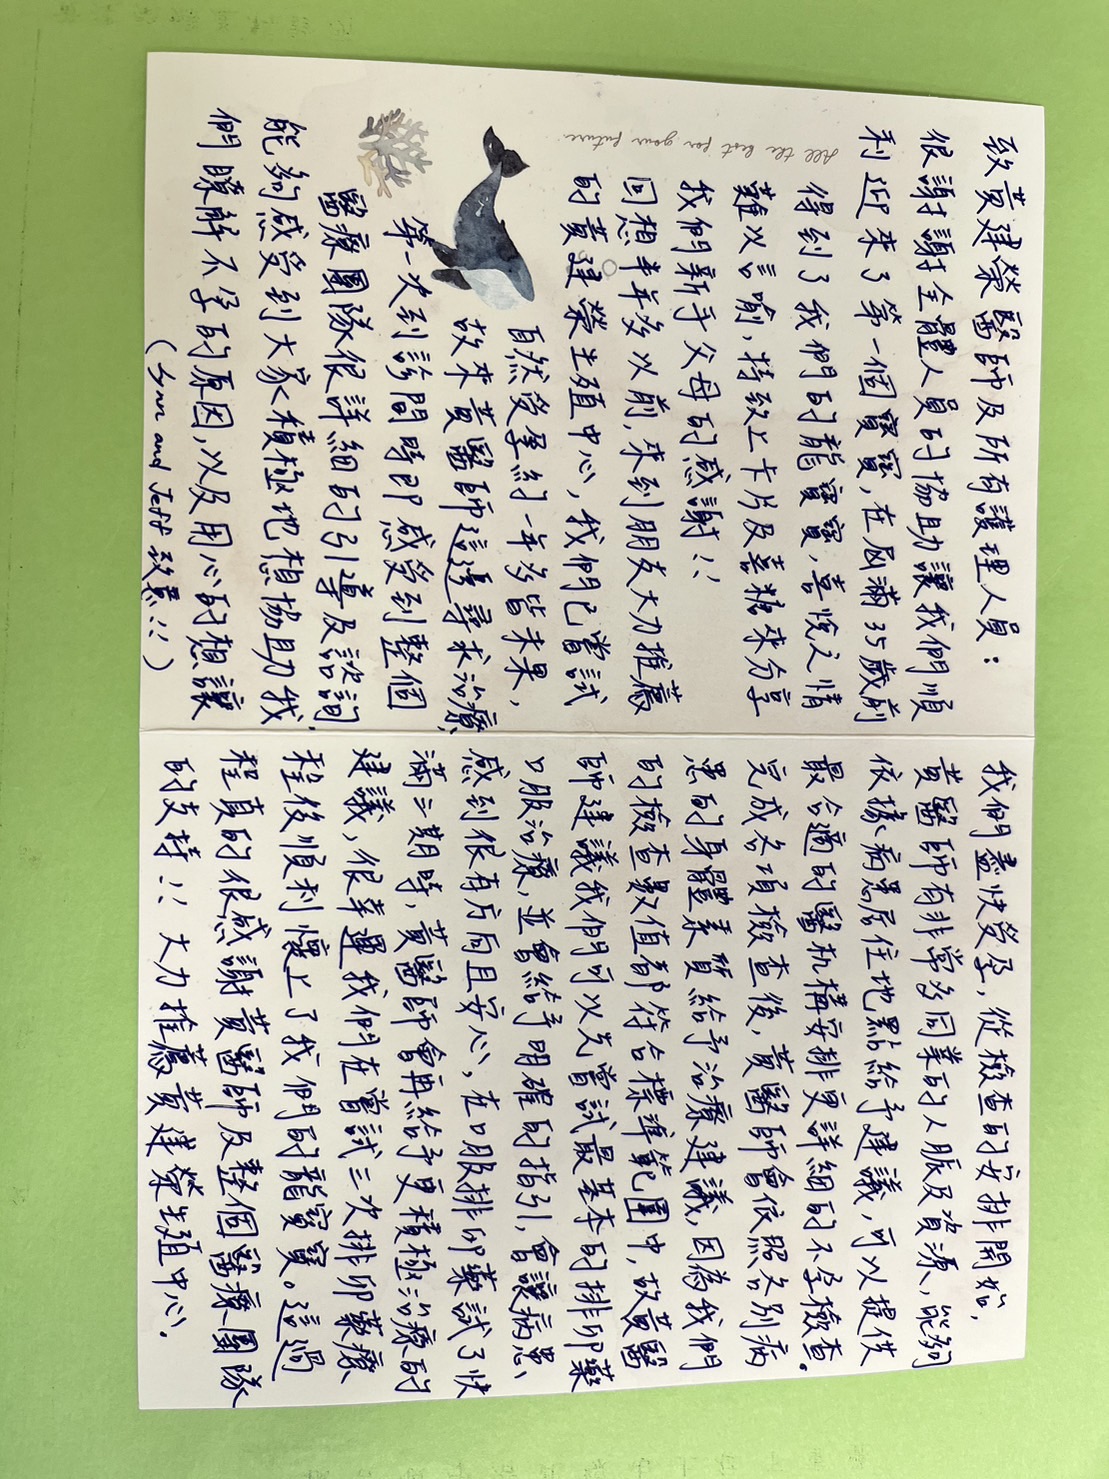 致黃建榮醫師及所有護理人員：
很謝謝全體人員的協助讓我們順
利迎來了第一個寶寶，在屆滿35歲前
得到了我們的龍寶寶，喜悅之情
難以言喻，特致上卡片及喜糖來分享
我們新手父母的感謝!!
回想半年多以前，來到朋友大力推薦
的黃建榮生殖中心，我們已嘗試
自然受孕約一年多皆未果，
故來黃醫師這邊尋求治療，
第一次到診間時即感受到整個
醫療團隊很詳細的引導及諮詢，
能夠感受到大家積極地想協助我
們瞭解不孕的原因，以及用心的想讓
All the best for your future
我們盡快受孕，從檢查的安排開始，
黃醫師有非常多同業的人脈及資源，能夠
依據病患居住地點給予建議，可以提供
最合適的醫療機構安排更詳細的不孕檢查。
完成各項檢查後，黃醫師會依照各別病
患的身體素質給予治療建議，因為我們
的檢查數值都符合標準範圍中，故黃醫
師建議我們可以先嘗試最基本的排卵藥
口服治療，並會給予明確的指引，會讓病患
感到很有方向且安心，在口服排卵藥試了快
滿三期時，黃醫師會再給予更積極治療的
建議，很幸運我們在嘗試三次排卵藥療
程後順利懷上了我們的龍寶寶。這過
程真的很感謝黃醫師及整個醫療團隊
的支持!! 大力推薦黃建榮生殖中心。
and Jeff 敬上!!)